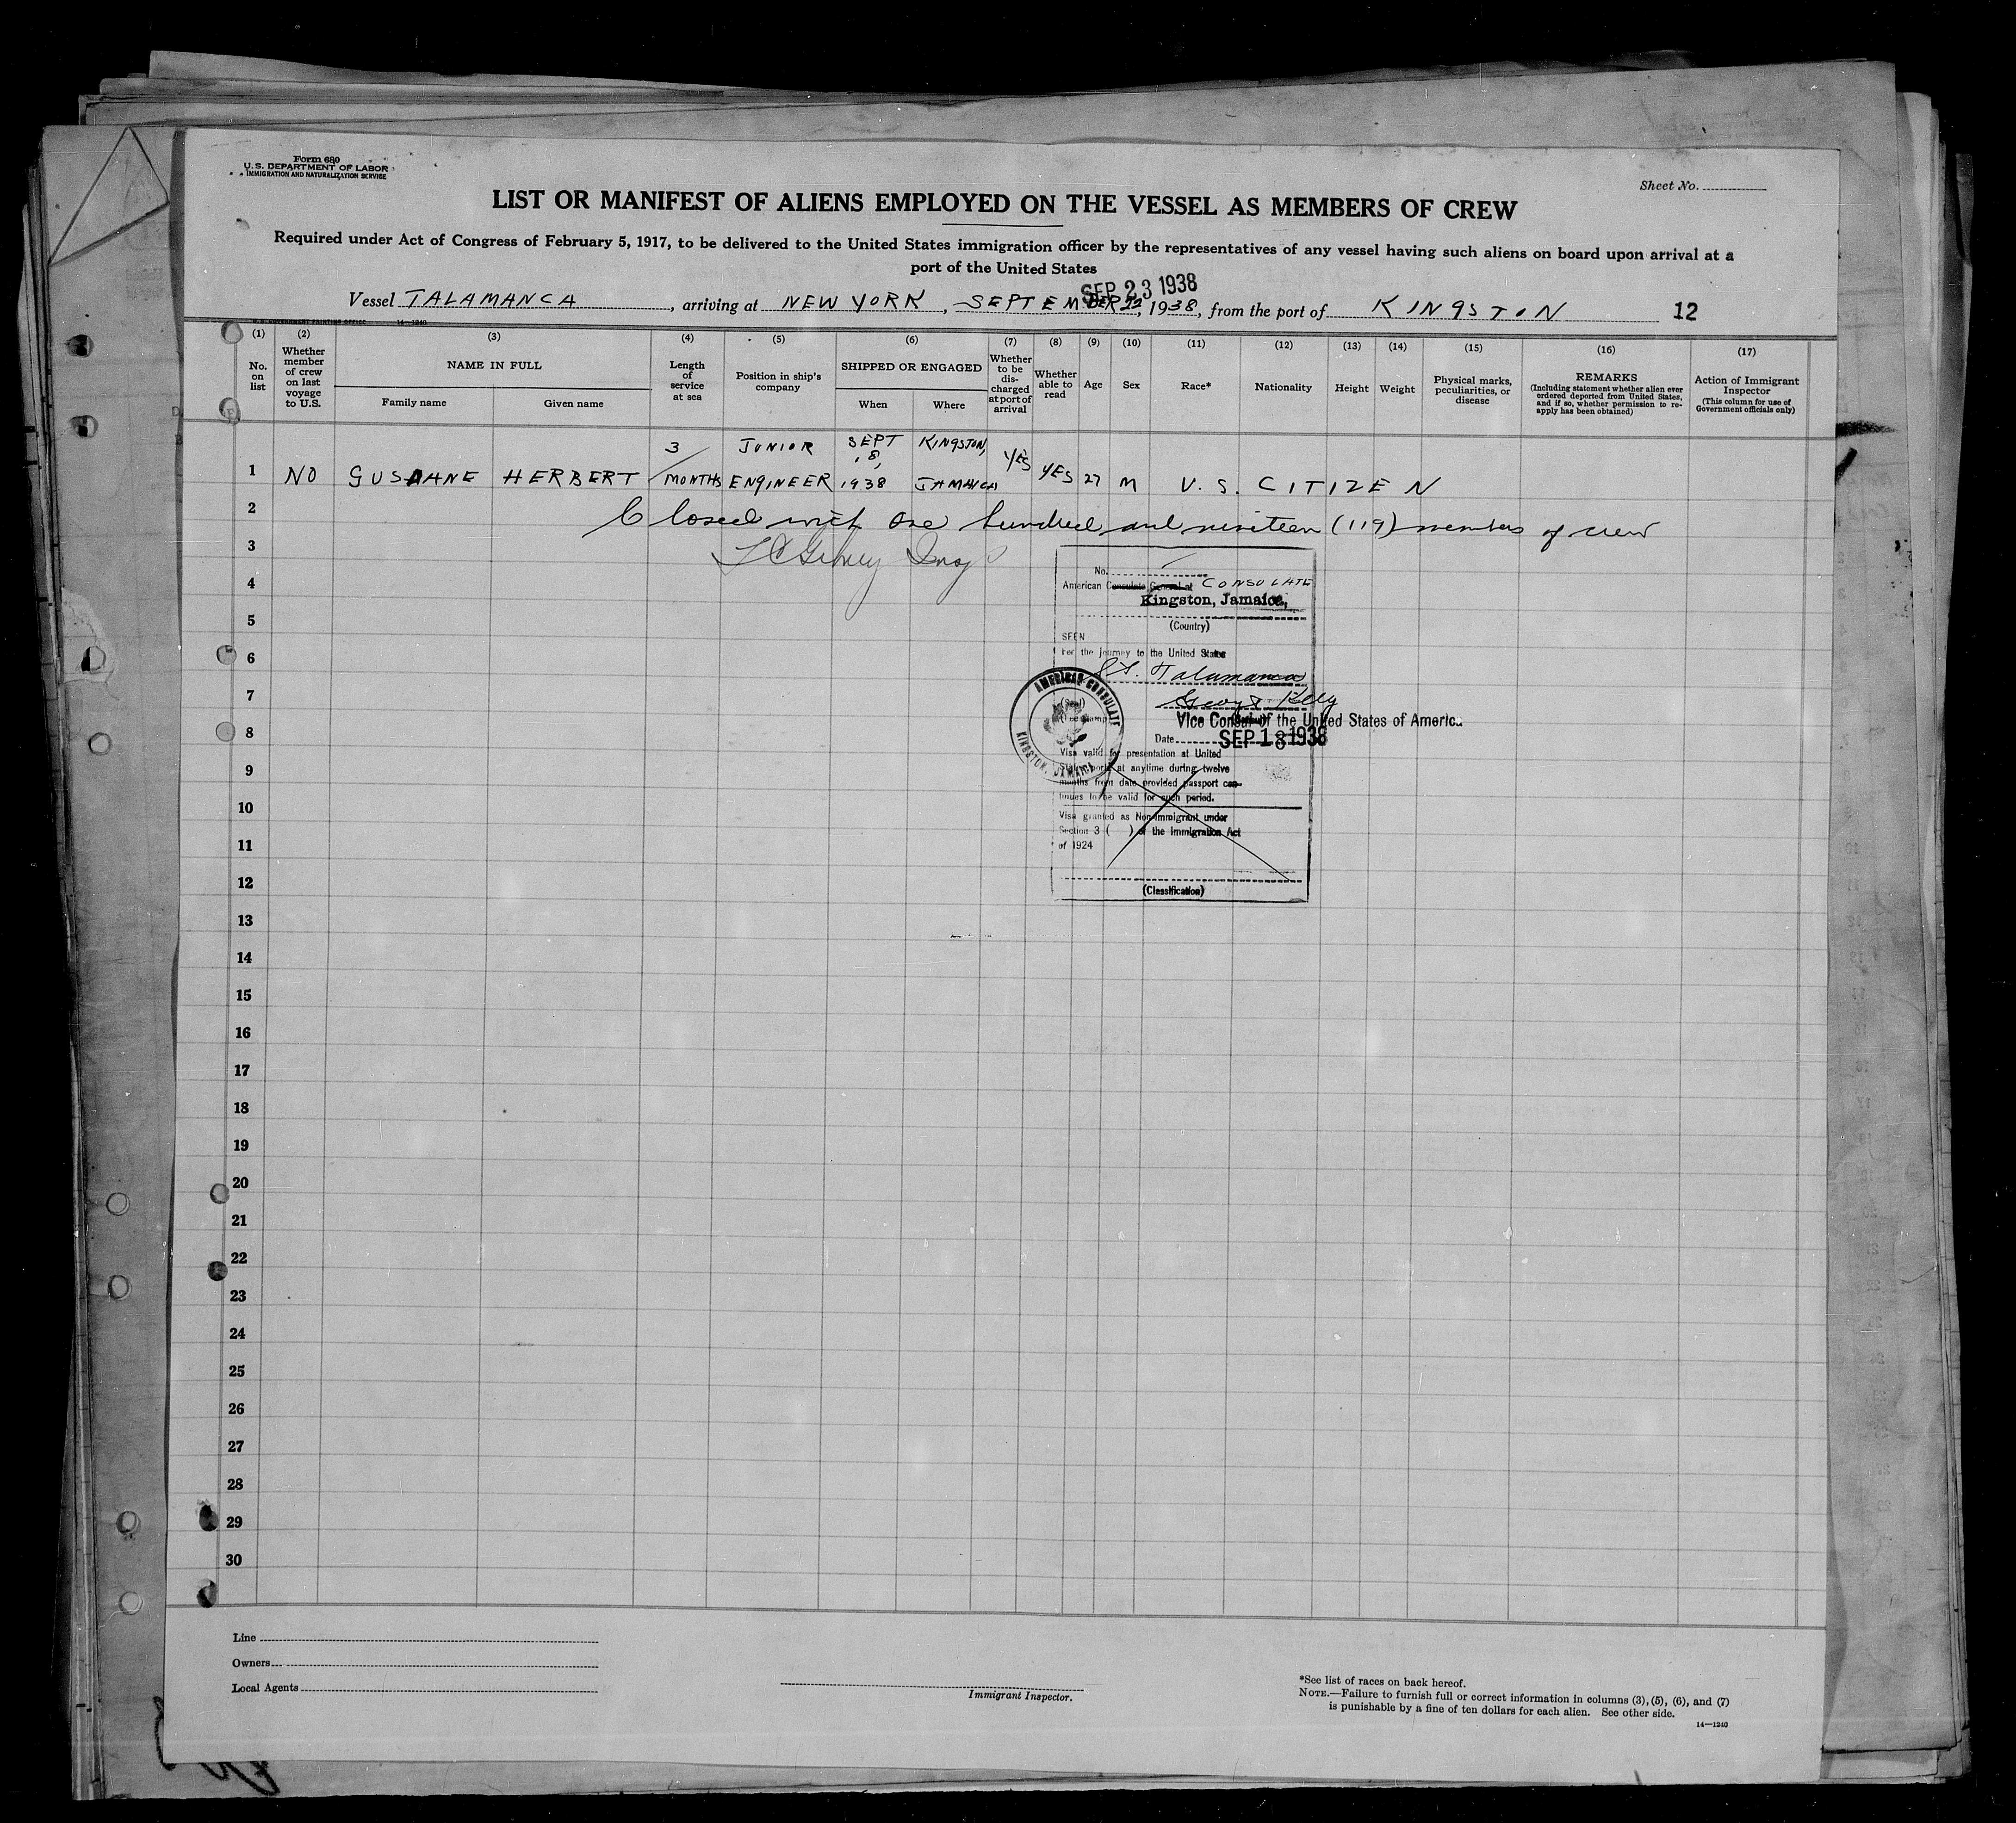 Form 680
U. S. DEPARTMENT OF LABOR
IMMIGRATION AND NATURALIZATION SERVICE
Sheet No.
LIST OR MANIFEST OF ALIENS EMPLOYED ON THE VESSEL AS MEMBERS OF CREW
Required under Act of Congress of February 5, 1917, to be delivered to the United States immigration officer by the representatives of any vessel having such aliens on board upon arrival at a
port of the United States
SEP 23 1938
Vessel TALAMANCA, arriving at NEW YORK, SEPTEMBER, 1938, from the port of KINGSTON 12
U.S. GOVERNMENT PRINTING OFFICE 14—1240
(1) No. on list
(2) Whether member of crew on last voyage to U.S.
(3) NAME IN FULL
Family name
Given name
(4) Length of service at sea
(5) Position in ship's company
(6) SHIPPED OR ENGAGED
When
Where
(7) Whether to be discharged at port of arrival
(8) Whether able to read
(9) Age
(10) Sex
(11) Race*
(12) Nationality
(13) Height
(14) Weight
(15) Physical marks, peculiarities, or disease
(16) REMARKS
(Including statement whether alien ever ordered deported from United States, and if so, whether permission to reapply has been obtained)
(17) Action of Immigrant Inspector
(This column for use of Government officials only)
3 JUNIOR SEPT 18, KINGSTON,
1 NO GUSDANE HERBERT MONTHS ENGINEER 1938 JAMAICA YES YES 27 M U. S. CITIZEN
2 Closed with one hundred and nineteen (119) members of crew
3
4
5
6
7
8
9
10
11
12
13
14
15
16
17
18
19
20
21
22
23
24
25
26
27
28
29
30
No.
American Consulate General at CONSULATE
Kingston, Jamaica,
(Country)
SEEN
For the journey to the United States
SS. Talamanca
Vice Consul of the United States of America
Date SEP 18 1938
AMERICAN CONSULATE
KINGSTON, JAMAICA
Visa valid for presentation at United
States ports at anytime during twelve
months from date provided passport con-
tinues to be valid for such period.
Visa granted as Non-immigrant under
Section 3 ( ) of the Immigration Act
of 1924
(Classification)
Line
Owners
Local Agents
Immigrant Inspector.
*See list of races on back hereof.
NOTE.—Failure to furnish full or correct information in columns (3), (5), (6), and (7)
is punishable by a fine of ten dollars for each alien. See other side.
14—1240